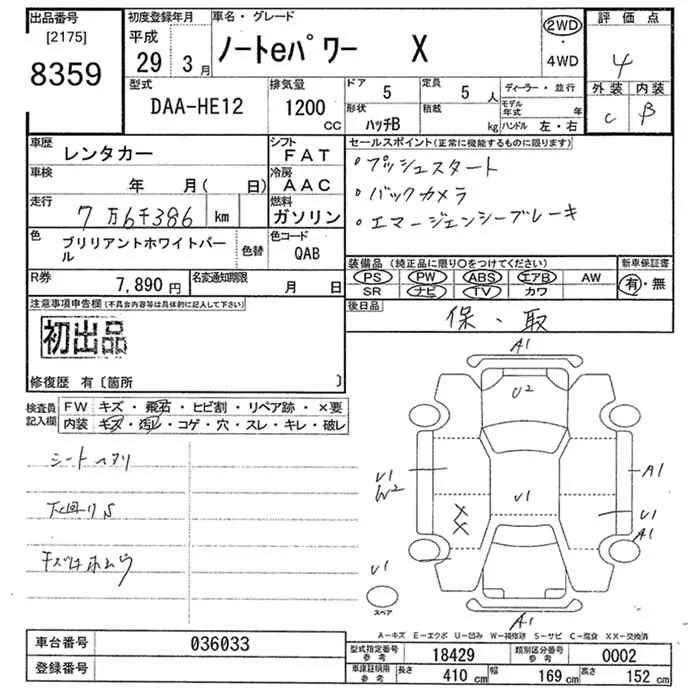 出品番号
[2175]
8359
初度登録年月
平成
29 3月
車名・グレード
ノートeパワー X
2WD
・
4WD
評価点
4
外装 内装
C B
型式
DAA-HE12
排気量
1200
CC
ドア
5
定員
5 人
形状
ハッチB
積載
kg
ディーラー・並行
モデル年式 年
ハンドル 左・右
車歴
レンタカー
シフト
FAT
車検
年 月( 日)
冷房
AAC
走行
7万6千386 km
燃料
ガソリン
色
ブリリアントホワイトパール
色替
色コード
QAB
R券
7,890円
名変通知期限
月 日
セールスポイント(正常に機能するものに限ります)
・プッシュスタート
・バックカメラ
・エマージェンシーブレーキ
装備品(純正品に限り○をつけてください)
新車保証書
PS PW ABS エアB AW
SR ナビ TV カワ
有・無
後日品
保・取
注意事項申告欄(不具合内容等は具体的に記入して下さい)
初出品
修復歴 有〔箇所 〕
検査員
記入欄
FW キズ・飛石・ヒビ割・リペア跡・×要
内装 キズ・汚レ・コゲ・穴・スレ・キレ・破レ
シートヘタリ
下回りS
A1
U2
U1
W2
U1
A1
U1
A1
U1
A1
スペア
A-キズ E-エクボ U-凹み W-補修跡 S-サビ C-腐食 XX-交換済
車台番号
036033
登録番号
型式指定番号
参考
18429
類別区分番号
参考
0002
車庫証明用
参考
長さ 410 cm
幅 169 cm
高さ 152 cm